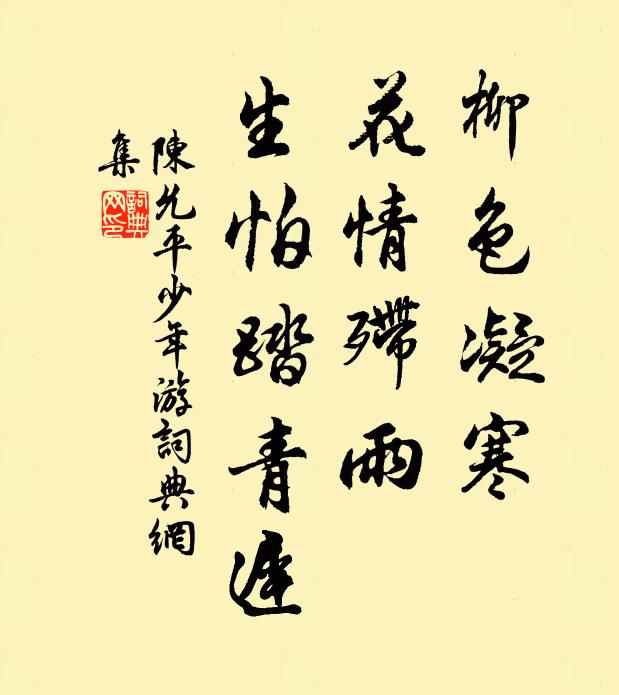 柳色凝寒
花情殢雨
生怕踏青遲
陳允平少年游詞典網
集
詞典網印